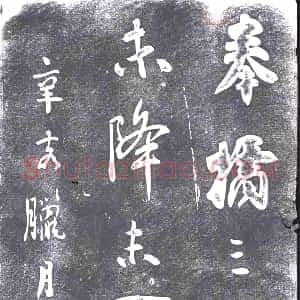 奉橘三
未降未
辛亥臘月